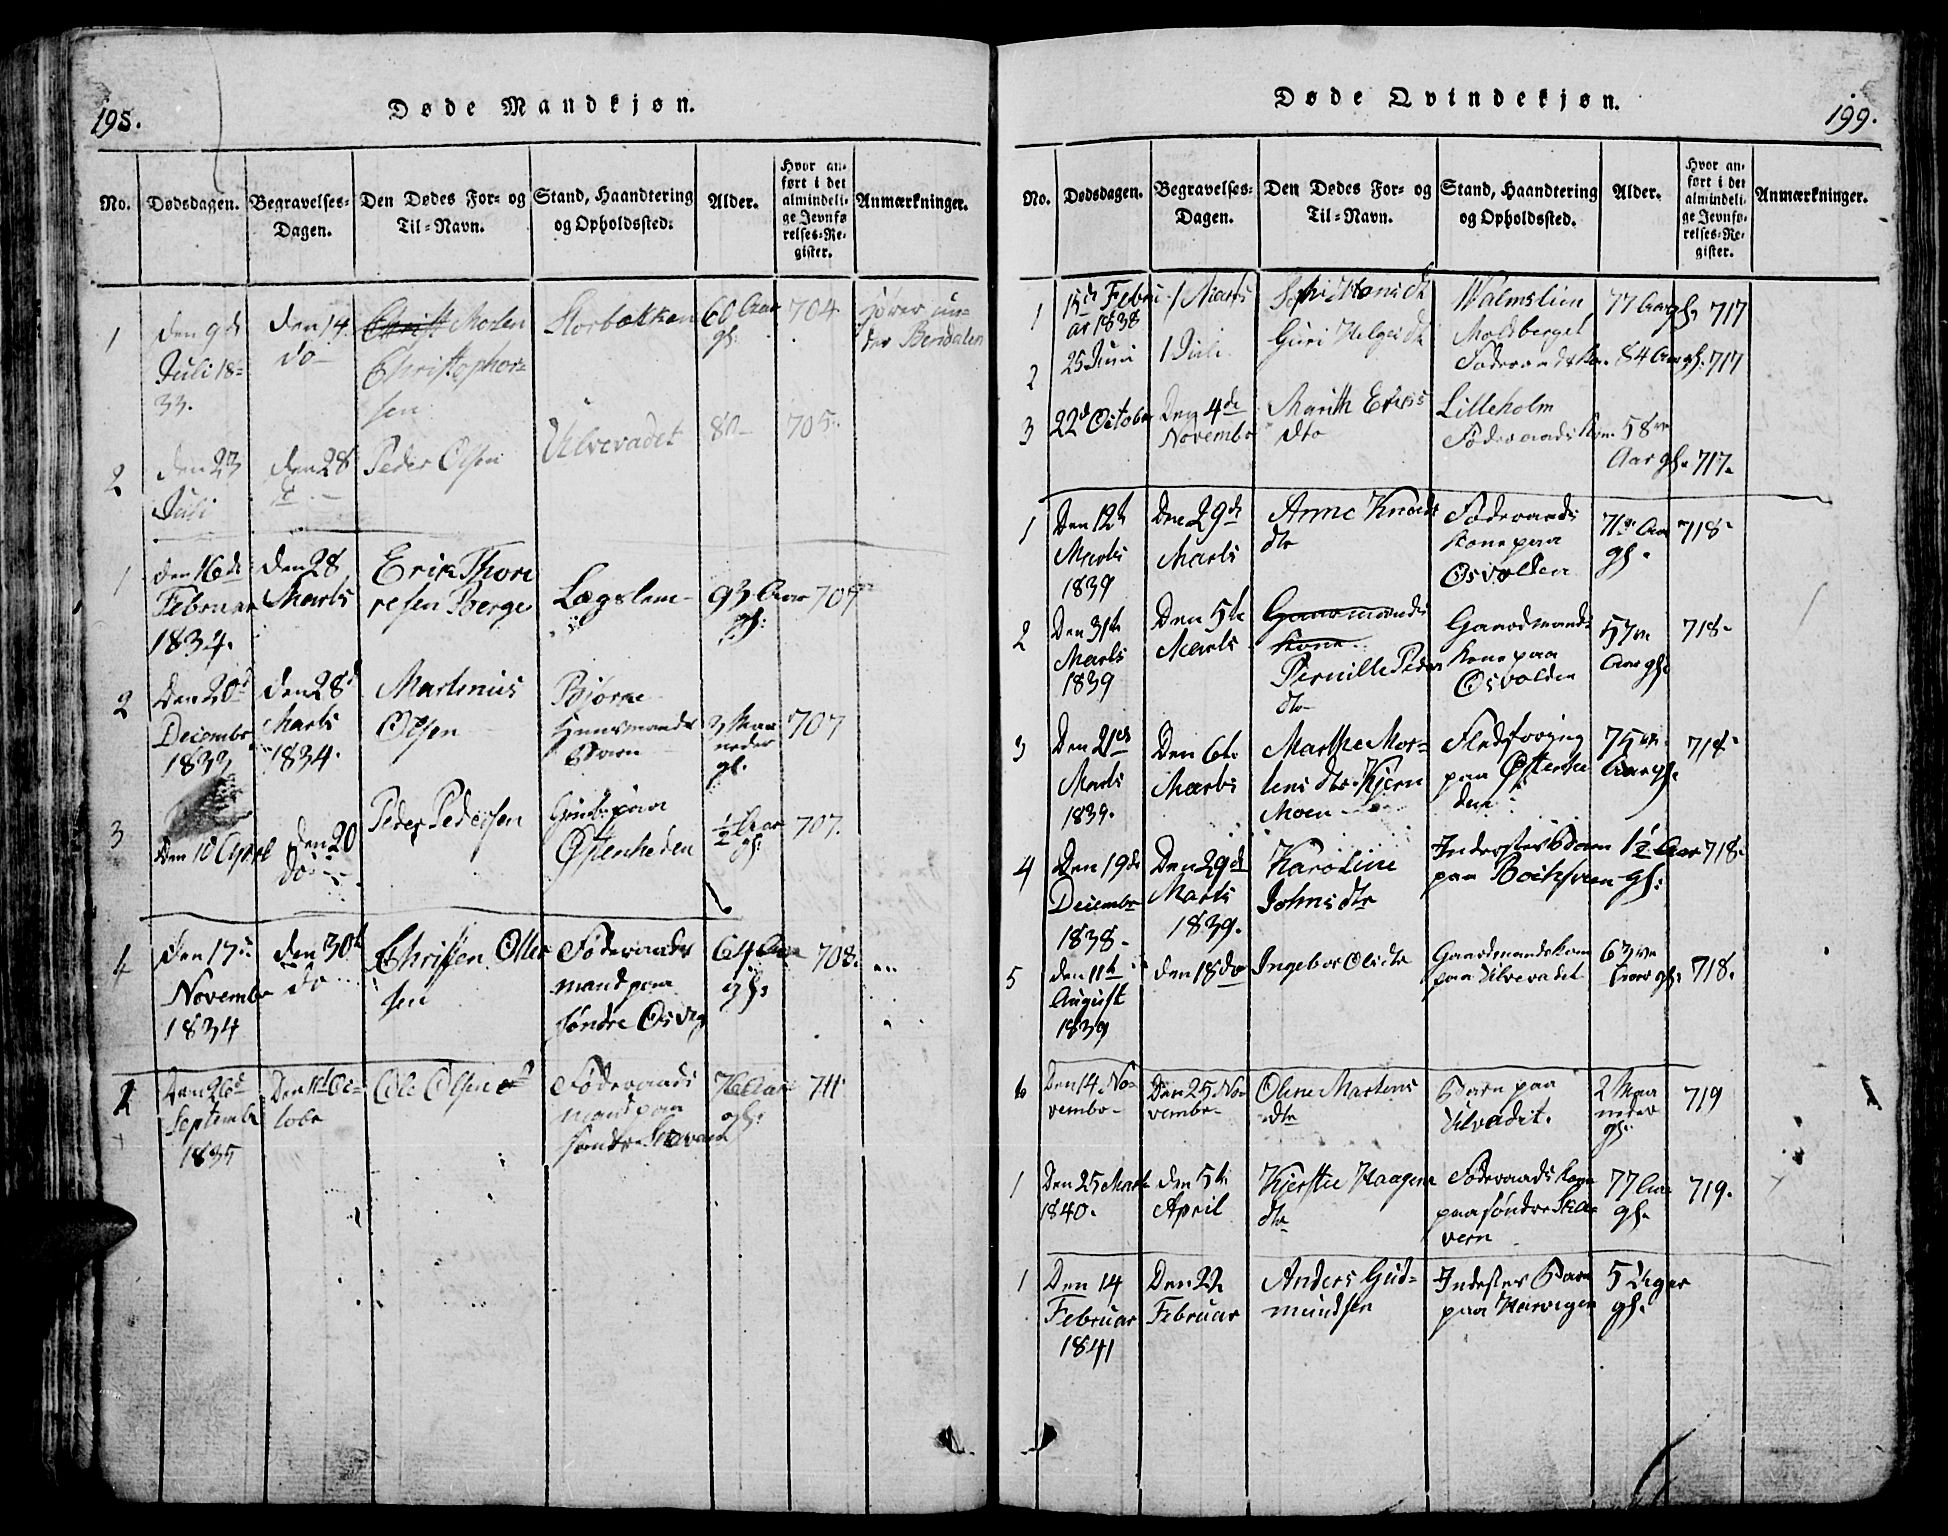 198.
Døde Mandkjøn.
No.
Dødsdagen.
Begravelses-
Dagen.
Den Dødes For- og
Til-Navn.
Stand, Haandtering
og Opholdssted.
Alder.
Hvor an-
ført i det
almindeli-
ge Jevnfø
relses-Re-
gister.
Anmærkninger.
1
den 9de
Juli 18-
33.
den 14.
do
Morten
Christophor-
sen
Storbækken
60 Aar
gl:
704.
2
den 23
Juli
den 28
Peder Olsen
Ulvevadet
80
705.
1
den 16de
Februar
1834.
den 28
Marts
Erik Thore
resen Berge
Lægslem
93 Aar
gl:
707
2
Den 20d
Decembr
1833
den 28d
Marts
1834.
Martinus
Olsen
Huusmands
Barn
3 Maa
neder
gl.
707
3
Den 10 April
den 20
do
Peder Pedersen
Østenheden
½ Aar
gl:
707.
4
Den 17de
Novembr
1834
den 30te
do
Christen Olle
sen
Føderaads
mand paa
søndre Osvig
64 Aar
gl:
708.
Den 26d
Septembr
1835
Den 11te Oc-
tobr
Ole Olsen
Føderaads
mand paa
søndre
76 Aar
gl:
711
Døde Qvindekjøn.
199.
No.
Dødsdagen.
Begravelses-
Dagen.
Den Dødes For- og
Til-Navn.
Stand, Haandtering
og Opholdssted.
Alder.
Hvor an-
ført i det
almindeli-
ge Jevnfø-
relses-Re-
gister.
Anmærkninger.
1
15de Febru
ar 1838
1 Marts
77 Aar gl. 717
2
25 Juni
1 Juli
Guri Helgedtr
Føderaadskone
84 Aar gl. 717
3
22d October
Den 4de
Novembr
Marith Eriks
dtr
Lilleholm
Føderaadskone
58
Aar gl. 717.
1
Den 12te
Marts
1839
Den 29de
Marts
Anne Knuds
dtr
Føderaads
kone paa
Osvolden
71 Aar
gl.
718
2
Den 31te
Marts
1839
Den 5te
Marts
Gaardmands
kone
Pernille Peders
dtr
Gaardmands
kone paa
Osvolden
57
Aar gl.
718
3
Den 21de
Marts
1839.
Den 6te
Marts
Marthe Mor-
tensdtr Kjern
Moen
paa Østenhe
den
75
Aar gl.
718
4
Den 19de
Decembr
1838
Den 29de
Marts
1839.
Karoline
Johnsdtr
Inderstes Barn
paa
1½ Aar
gl:
718.
5
den 11te
August
1839
den 18 do
Ingebor Olsdtr
Gaardmandskone
paa Ulvevadet
63
Aar gl.
718.
6
Den 14 No-
vembr
Den 25 No-
vembr
Oline Martens
dtr
Barn paa
Ulvadet.
2 Maa
neder
gl.
719
1
Den 25 Marts
1840.
den 5te
April
Kjerstie Haagens
dtr
Føderaadskone
paa søndre Ska-
vern
77 Aar
gl.
719.
1
Den 14
Februar
1841
Den 22
Februar
Anders Gud-
mundsen
Inderstes Barn
paa Harvigen
5 Uger
gl.